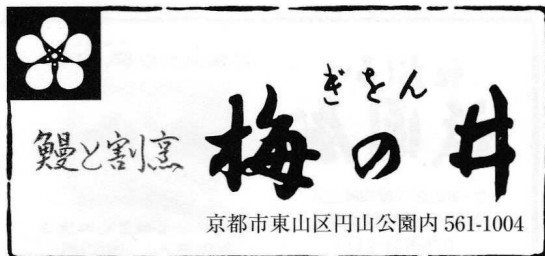 鰻と割烹
ぎをん
梅の井
京都市東山区円山公園内 561-1004